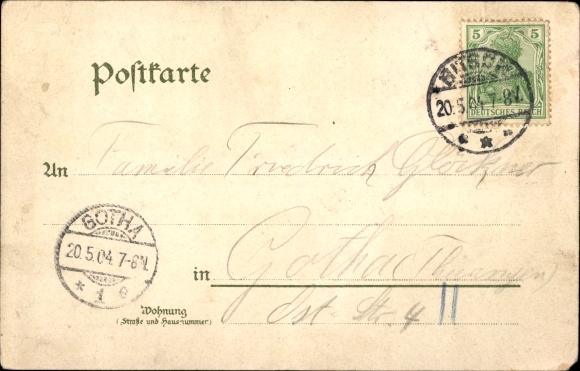 5 5
DEUTSCHES REICH
Postkarte
20.5.04.7-8V.
An Familie Friedrich Glöckner
GOTHA
20.5.04.7-8V.
* 1 e
in Gotha (Thüringen)
Wohnung
(Straße und Hausnummer)
Ost-Str. 4 11